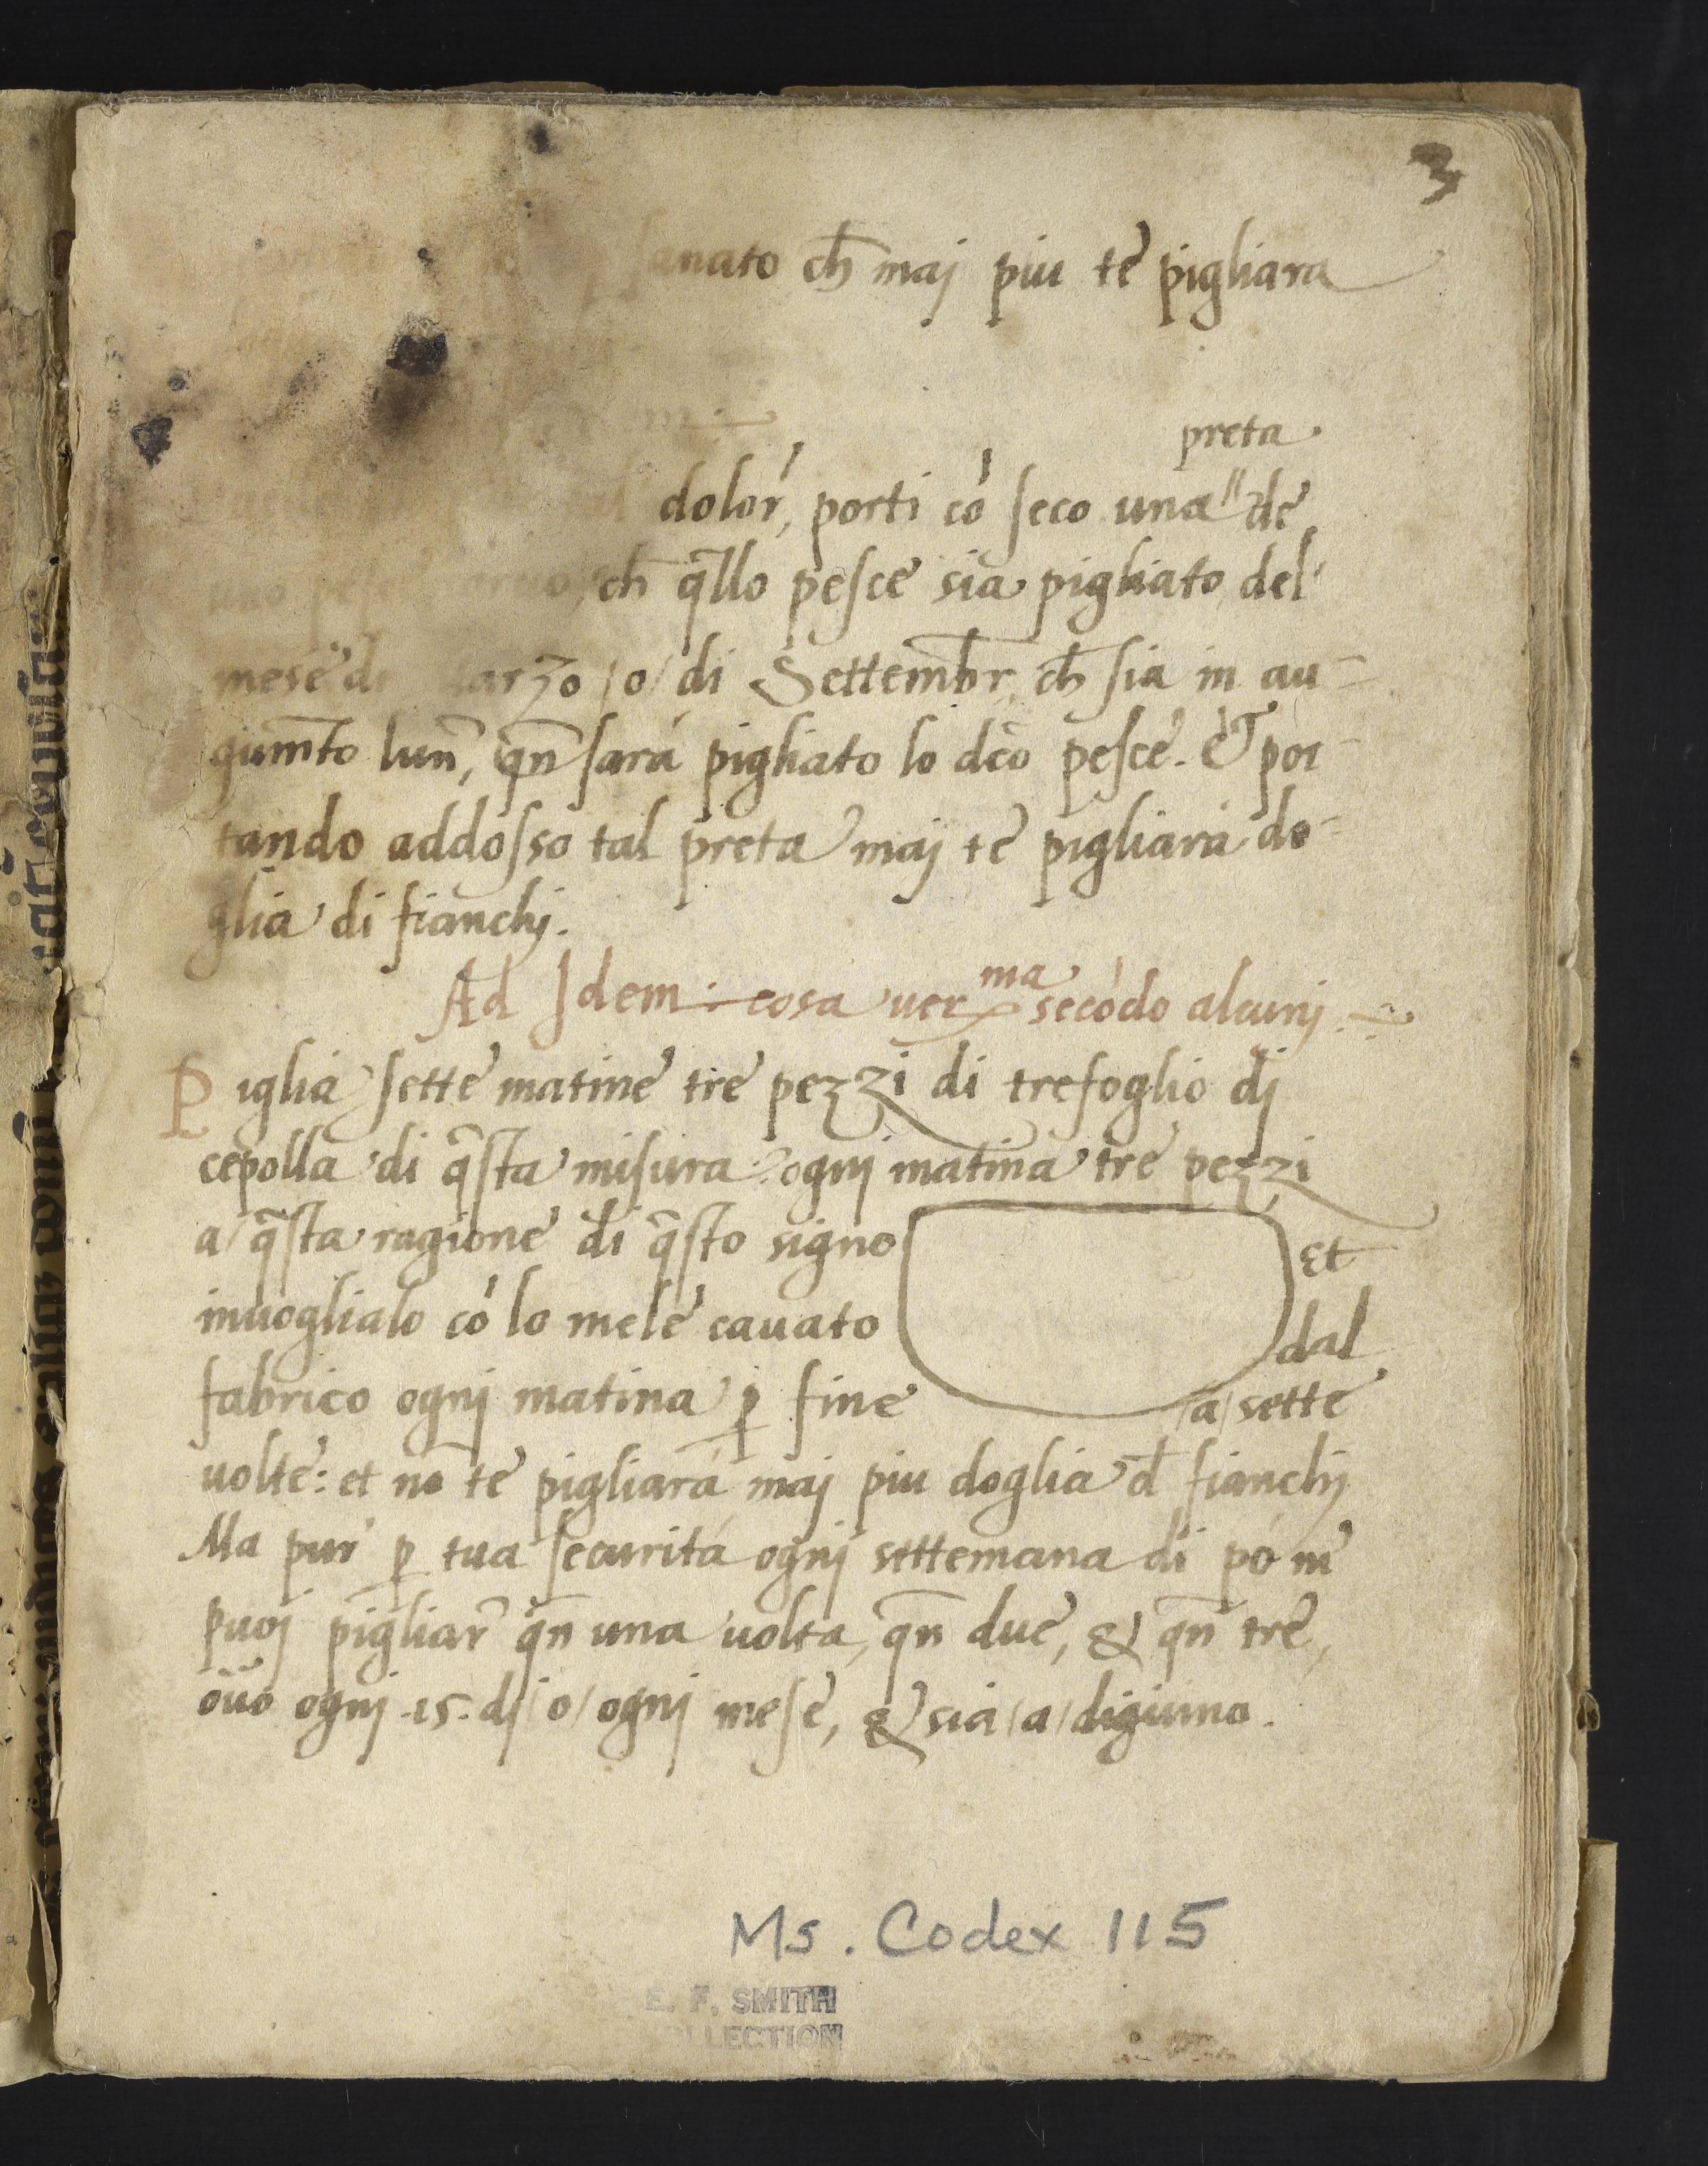 3
anato ch̄ maj piu te pigliara
preta
dolor̄, porti cō seco una" de
ch̄ q̄llo pesce sia pigliato del
mese d arzo /o/ di Settembr̄ ch̄ sia in au=
gum̄to lun̄, qn̄ sará pigliato lo dc̄o pesce. & por=
tando addosso tal preta maj te pigliará do=
glia di fianchj.
Ad Idem: cosa uer.ma secōdo alcunj
Piglia sette matine tre pezzi di trefoglio dj
cepolla di q̄sta misura: ognj matina tre pezzi
a/ q̄sta ragione di q̄sto signo Et
inuoglialo cō lo mele cauato dal
fabrico ognj matina ꝑ fine /a/ sette
uolte: et nō te pigliará maj piu doglia đ fianchj
Ma pur ꝑ tua securitá ognj settemana di pō n̄e
puoj pigliar̄ qn̄ una uolta, qn̄ due, & qn̄ tre,
ōuō ognj .15. dj /o/ ognj mese, & sia /a/ digiuno.
Ms. Codex 115
E. F. SMITH
LLECTION